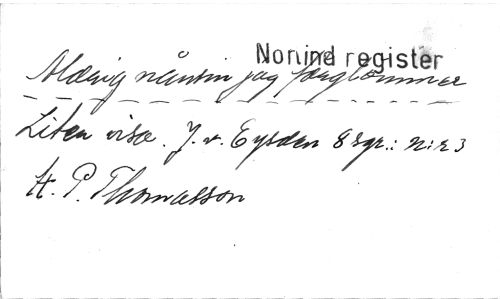 Nonind register
Aldrig nånsin jag förglömmer
Liten visa. J. v. Eysden 8 sgr.: n:r 3
H. P. Thomasson